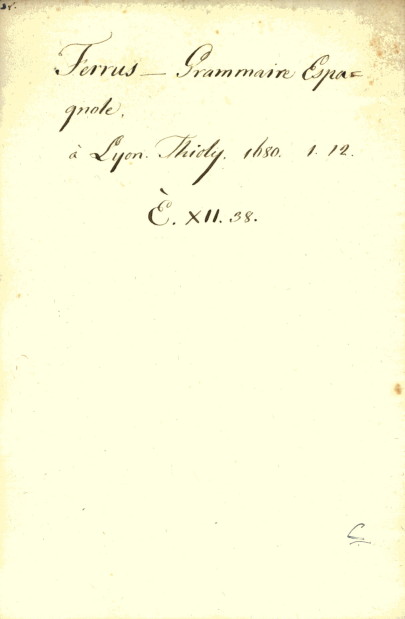 Ferrus — Grammaire Espa=
gnole.
à Lyon. Thioly. 1680. 1. 12.
È. XII. 38.
C